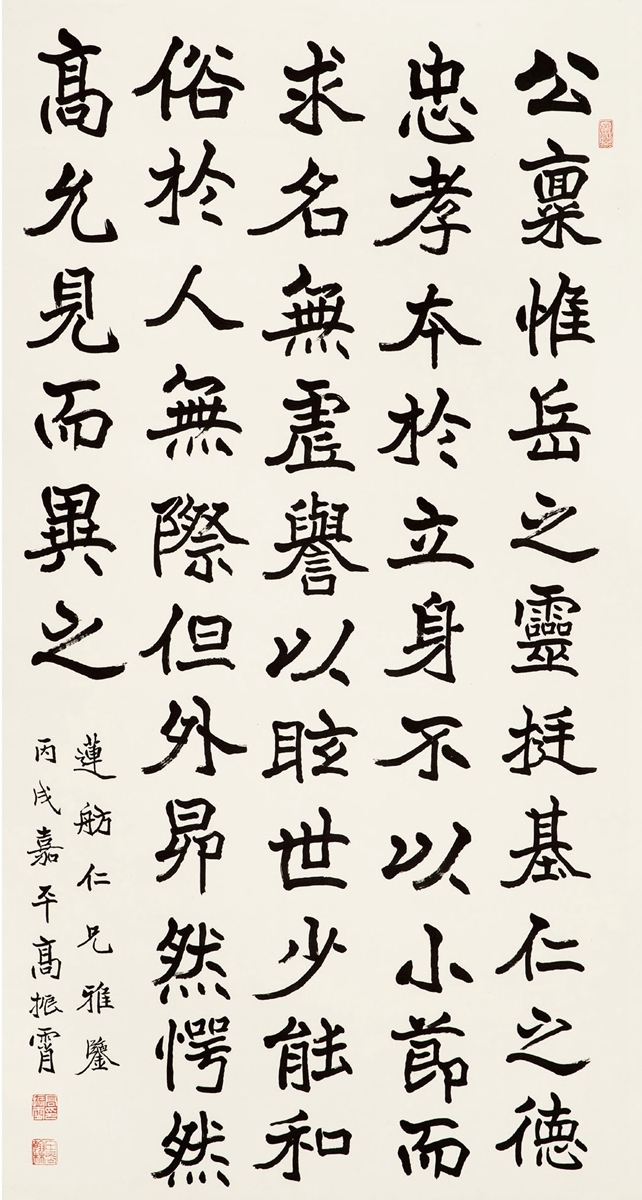 公稟惟岳之靈挺基仁之德
忠孝本於立身不以小節而
求名無虛譽以眩世少能和
俗於人無際但外昂然愕然
高允見而異之
蓮舫仁兄雅鑒
丙戌嘉平高振霄